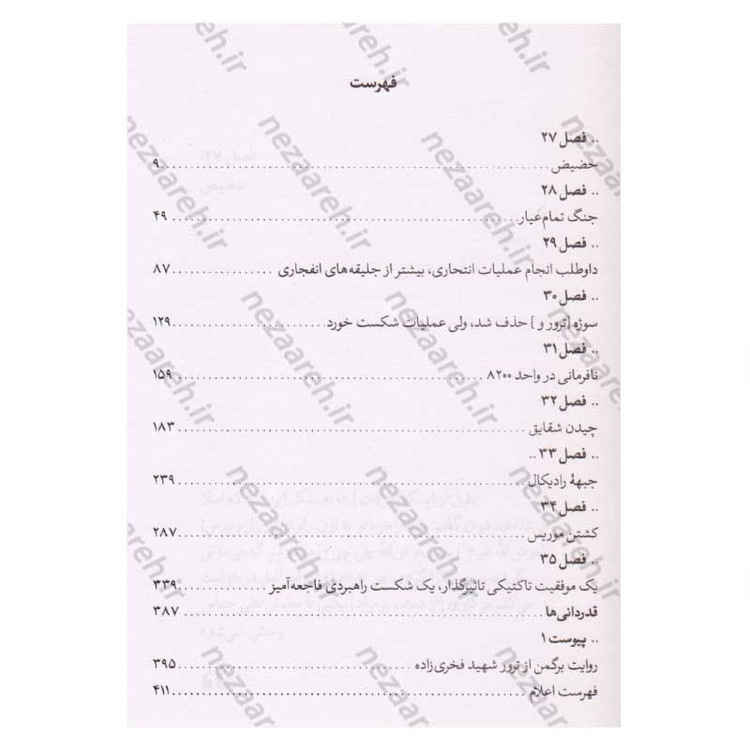 فهرست
.. فصل ۲۷
حضیض ۹
.. فصل ۲۸
جنگ تمام‌عیار ۴۹
.. فصل ۲۹
داوطلب انجام عملیات انتحاری، بیشتر از جلیقه‌های انفجاری ۸۷
.. فصل ۳۰
سوژه [ترور و] حذف شد، ولی عملیات شکست خورد ۱۲۹
.. فصل ۳۱
نافرمانی در واحد ۸۲۰۰ ۱۵۹
.. فصل ۳۲
چیدن شقایق ۱۸۳
.. فصل ۳۳ ..
جبههٔ رادیکال ۲۳۹
.. فصل ۳۴
کشتن موریس ۲۸۷
.. فصل ۳۵
یک موفقیت تاکتیکی تاثیرگذار، یک شکست راهبردی فاجعه‌آمیز ۳۳۹
قدردانی‌ها ۳۸۷
.. پیوست ۱
روایت برگمن از ترور شهید فخری‌زاده ۳۹۵
فهرست اعلام ۴۱۱
nezaareh.ir